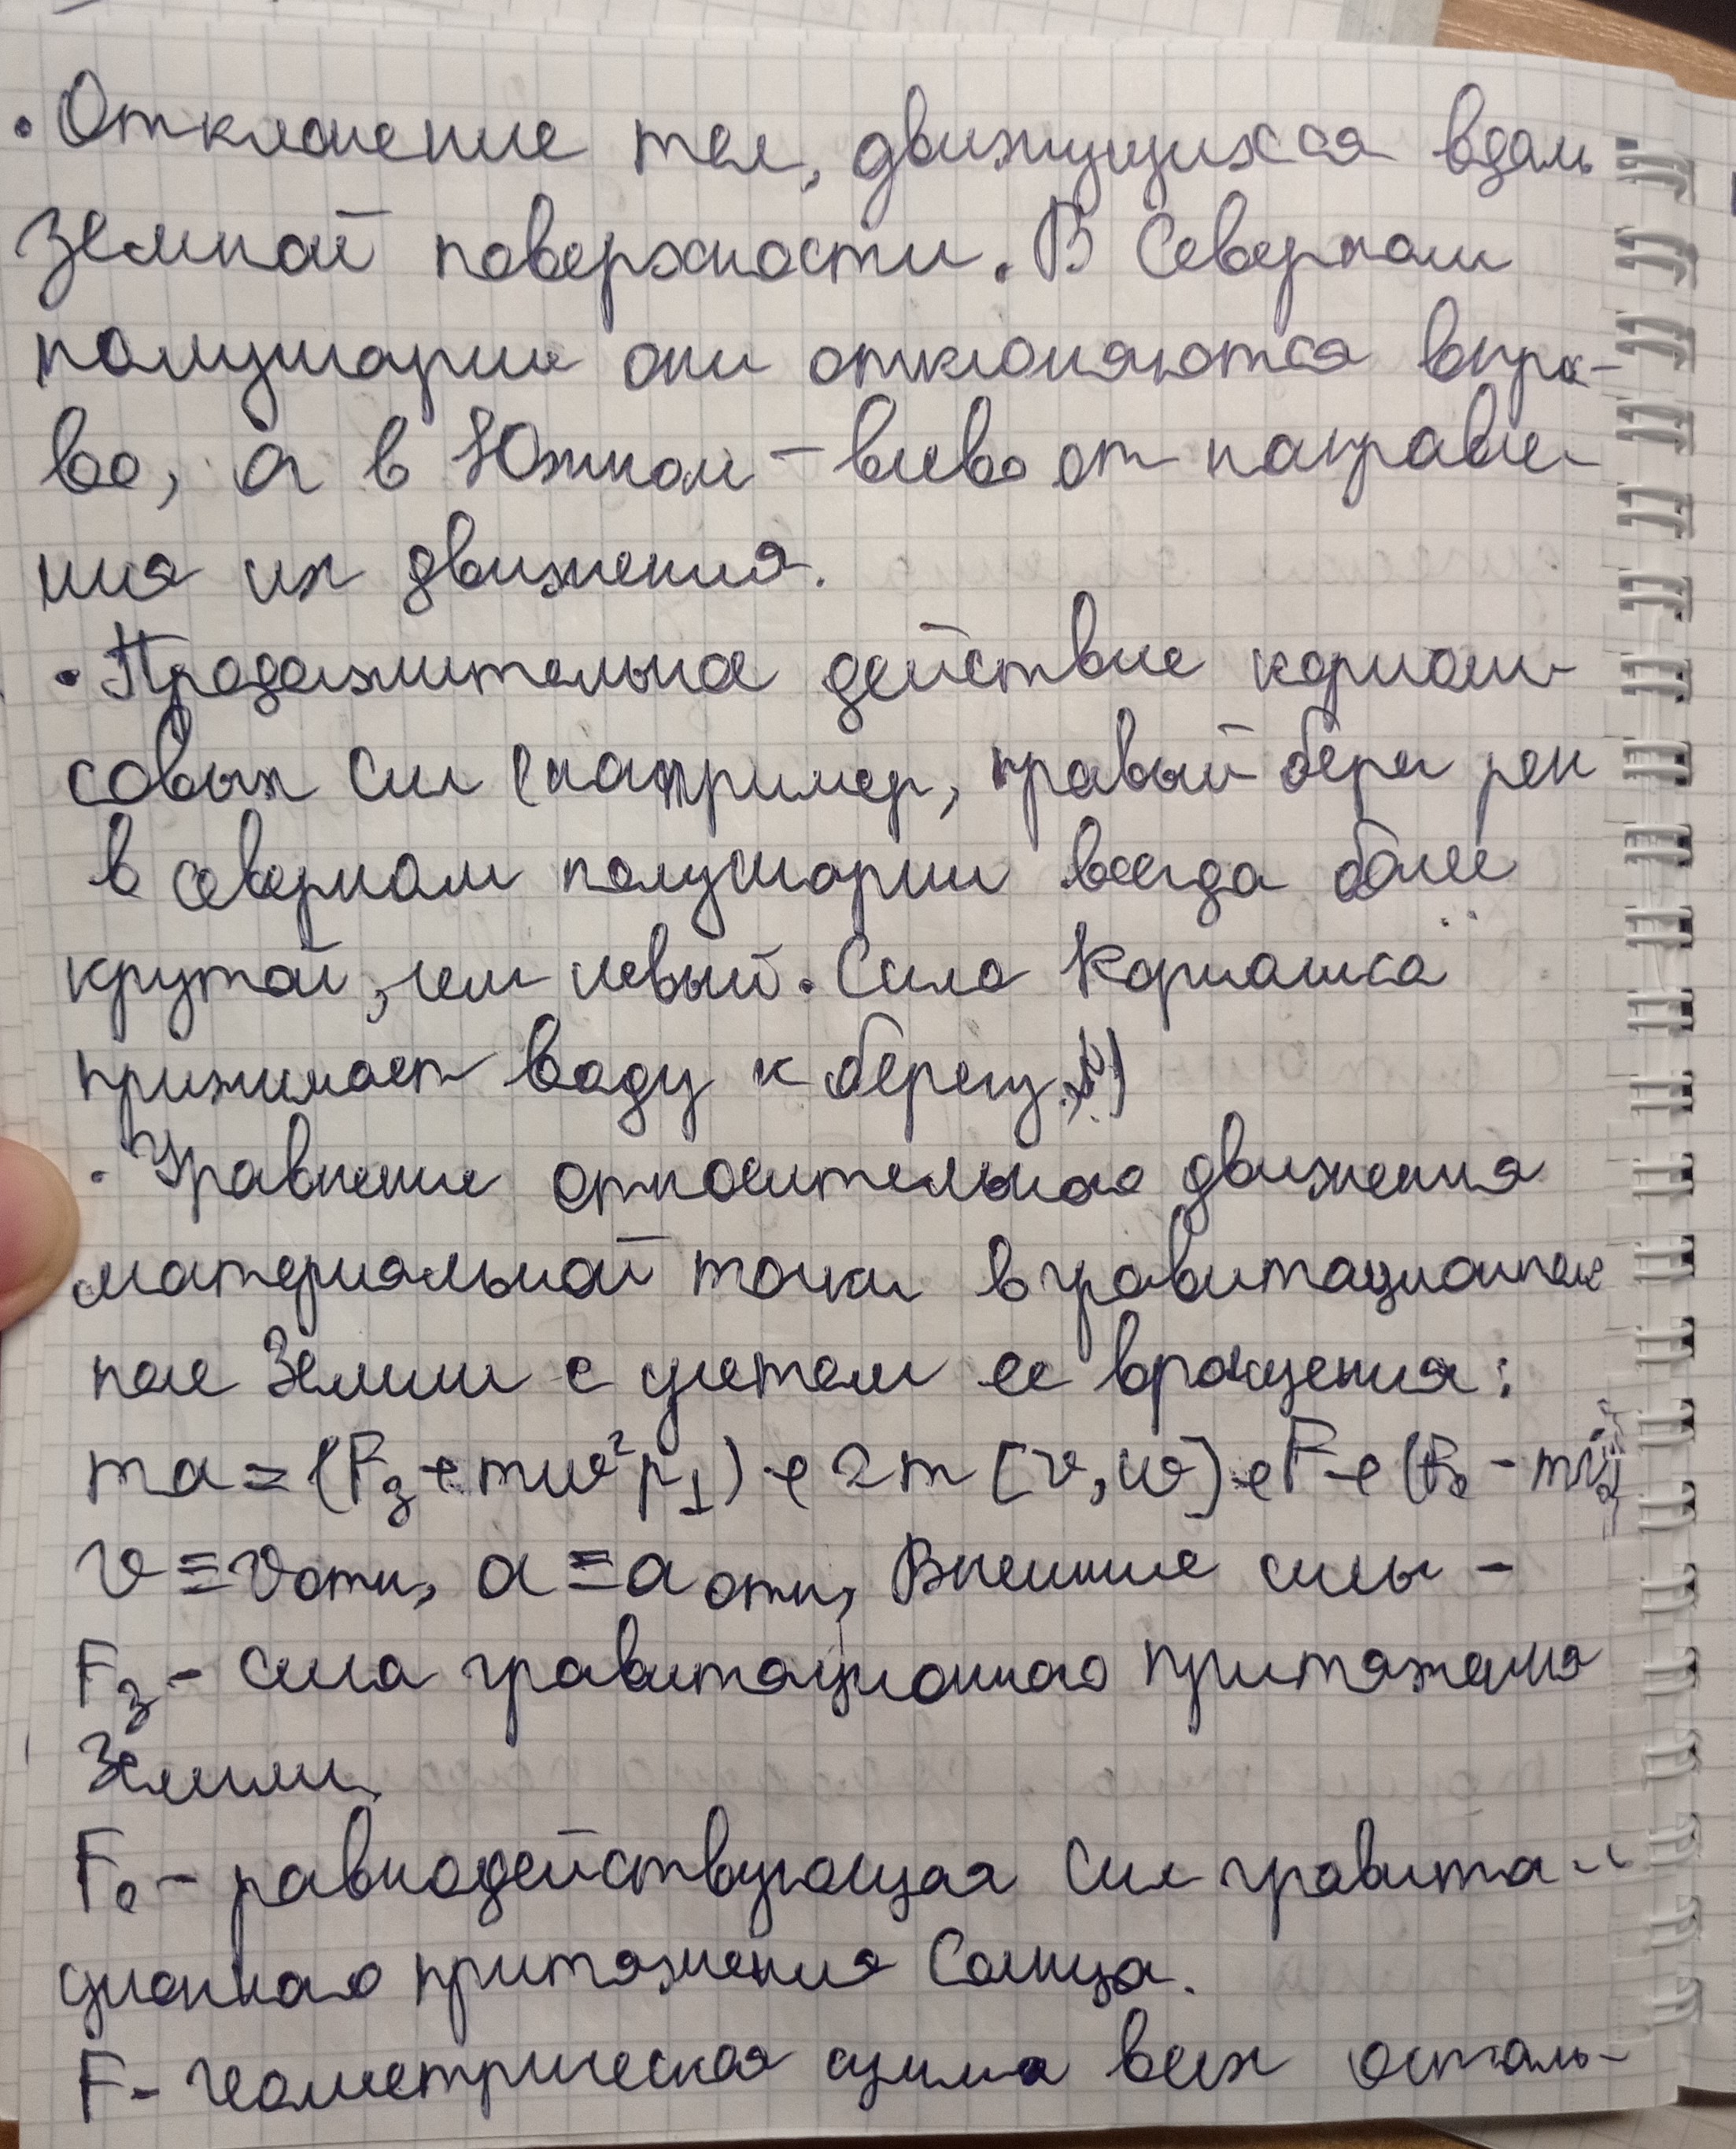 • Отклонение тел, движущихся вдоль
земной поверхности. В Северном
полушарии они отклоняются впра-
во, а в Южном – влево от направле-
ния их движения.
• Продолжительное действие кориоли-
совых сил (например, правый берег рек
в северном полушарии всегда более
крутой, чем левый. Сила Кориолиса
прижимает воду к берегу.)
• Уравнение относительного движения
материальной точки в гравитационном
поле Земли с учетом ее вращения:
ma = (Fз + mω²ρ⊥) + 2m [v, ω] + F + (F₀ - m
v ≡ vотн, a ≡ aотн, Внешние силы –
Fз – сила гравитационного притяжения
Земли.
F₀ – равнодействующая сил гравита-
ционного притяжения Солнца.
F – геометрическая сумма всех осталь-